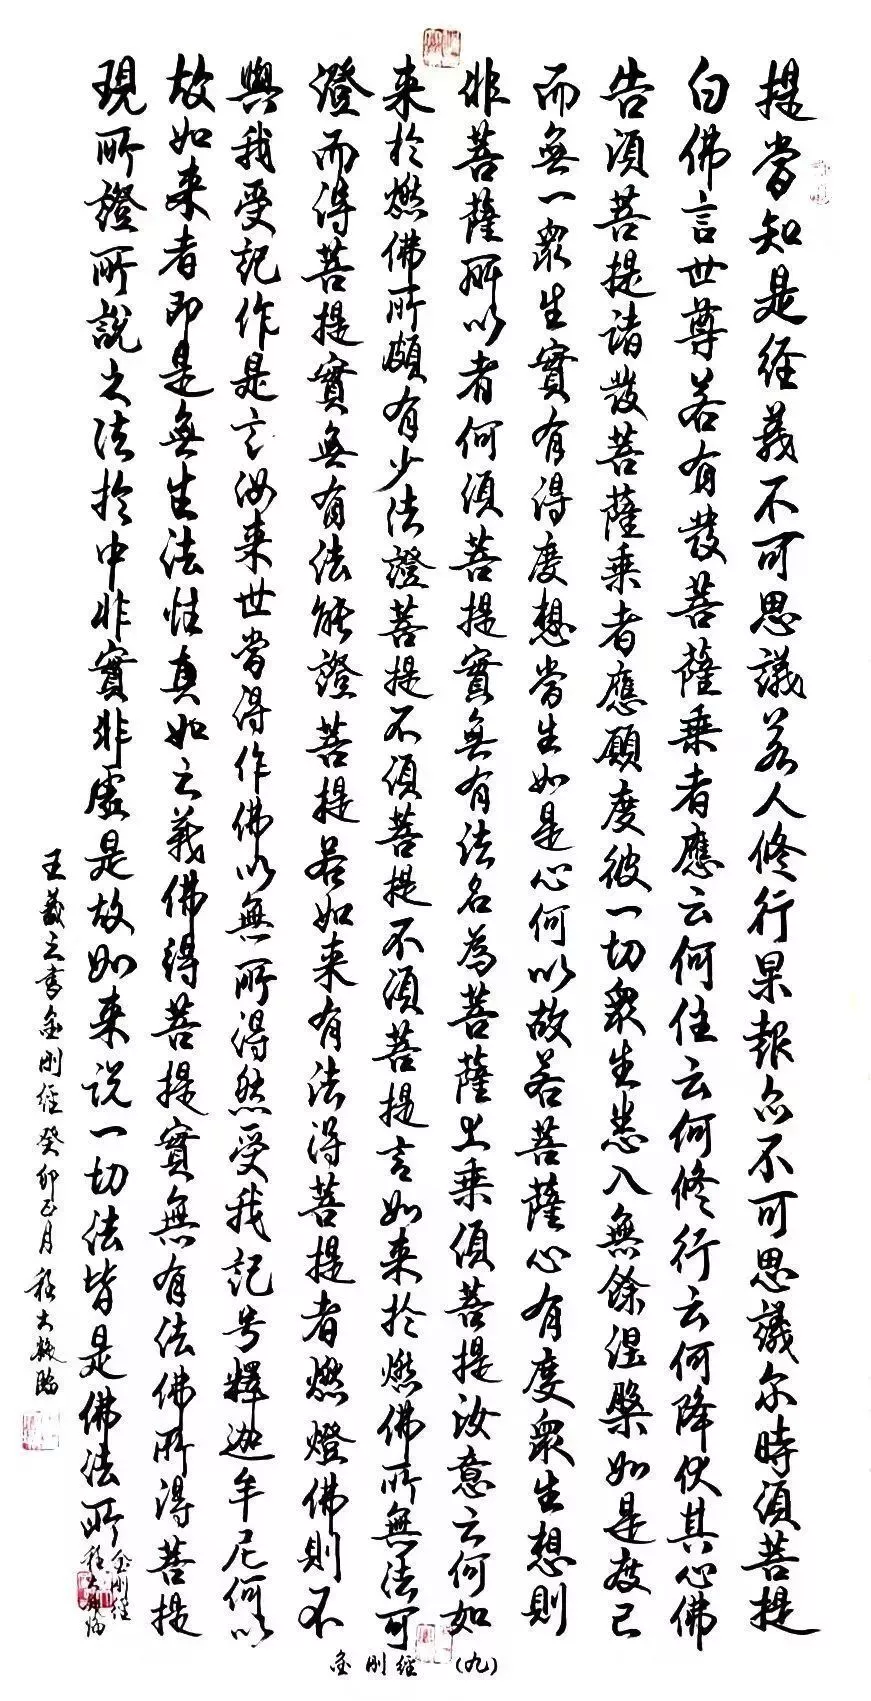 提當知是经義不可思議若人修行果報亦不可思議尔時須菩提
白佛言世尊若有發菩薩乘者應云何住云何修行云何降伏其心佛
告須菩提諸發菩薩乘者應願度彼一切衆生悉入無餘涅槃如是度已
而無一衆生實有得度想當生如是心何以故若菩薩心有度衆生想則
非菩薩所以者何須菩提實無有法名為菩薩上乘須菩提汝意云何如
来於燃佛所頗有少法證菩提不須菩提不須菩提言如来於燃佛所無法可
澄而得菩提實無有法能證菩提若如来有法得菩提者燃燈佛則不
與我受記作是言汝来世當得作佛以無所得然受我記号釋迦牟尼何以
故如来者即是無生法性真如之義佛得菩提實無有法佛所得菩提
現所證所說之法於中非實非虛是故如来说一切法皆是佛法所
王羲之書金刚经癸卯正月程大越臨
金刚经
金刚经 (九)